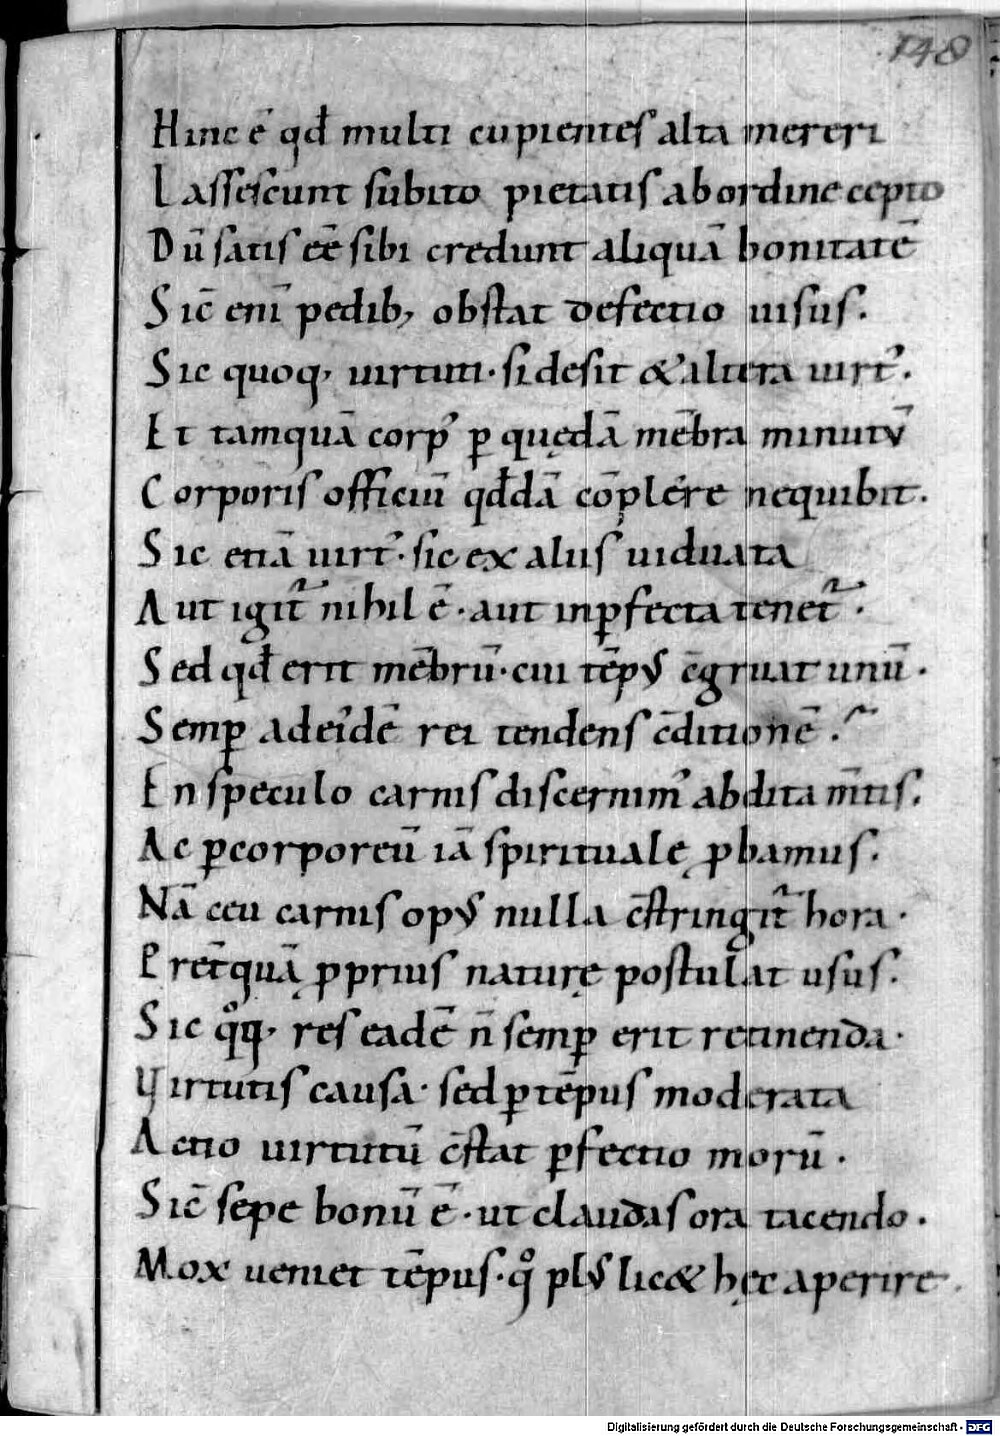 148
Hinc ē qđ multi cupientes alta mereri
Lassescunt subito pietatis ab ordine cepto
Dū satis eē sibi credunt aliquā bonitatē
Sic̄ enī pedib; obstat defectio uisus.
Sic quoq; uirtuti· si desit & altera uirtꝰ.
Et tamquā corpꝰ ꝑ quędā mēbra minutū
Corporis officiū qđdā cōplere nequibit.
Sic etiā uirtꝰ· sic ex aliis uiduata
Aut igit᷑ nihil ē· aut inꝑfecta tenet᷑.
Sed qđ erit mēbrū· cui tēpus c̄gruat unū.
Sempꝑ ad eīdē rei tendens c̄ditionē.
En speculo carnis discernimꝰ abdita m̄tis.
Ac ꝑ corporeū iā spirituale ꝓbamus.
Nā ceu carnis opus nulla c̄stringit᷑ hora·
Pret̄quā ꝓprius naturę postulat usus.
Sic qͦq; res eadē n̄ semꝑ erit retinenda·
Virtutis causa· sed ꝑ tēpus moderata
Actio uirtutū c̄stat ꝑfectio morū.
Sic̄ sepe bonū ē· ut claudas ora tacendo.
Mox ueniet tēpus· qͦ plus lic& hęc aperire.
Digitalisierung gefördert durch die Deutsche Forschungsgemeinschaft - DFG